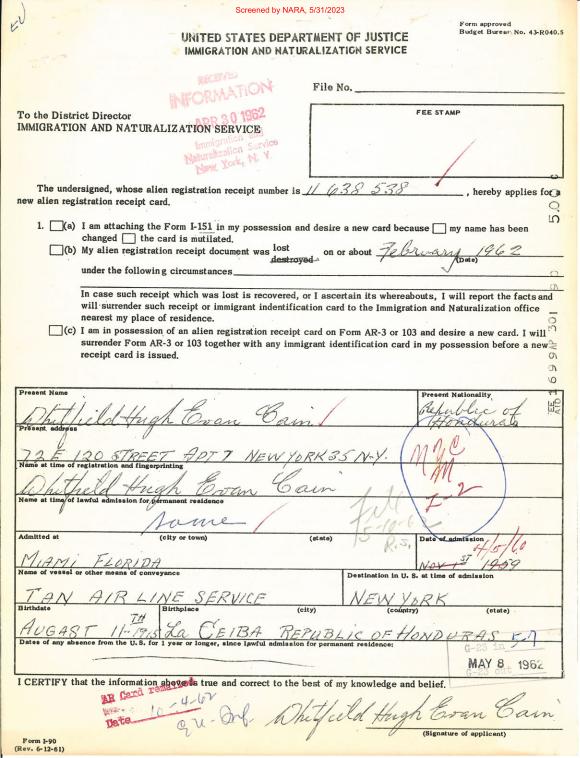 Screened by NARA, 5/31/2023
Form approved
Budget Bureau No. 43-R040.5
UNITED STATES DEPARTMENT OF JUSTICE
IMMIGRATION AND NATURALIZATION SERVICE
RECEIVED
INFORMATION
APR 30 1962
Immigration and
Naturalization Service
New York, N. Y.
File No.
To the District Director
IMMIGRATION AND NATURALIZATION SERVICE
FEE STAMP
The undersigned, whose alien registration receipt number is 11 638 538, hereby applies for a
new alien registration receipt card.
1. (a) I am attaching the Form I-151 in my possession and desire a new card because my name has been
changed the card is mutilated.
(b) My alien registration receipt document was lost destroyed on or about February 1962
(Date)
under the following circumstances
In case such receipt which was lost is recovered, or I ascertain its whereabouts, I will report the facts and
will surrender such receipt or immigrant identification card to the Immigration and Naturalization office
nearest my place of residence.
(c) I am in possession of an alien registration receipt card on Form AR-3 or 103 and desire a new card. I will
surrender Form AR-3 or 103 together with any immigrant identification card in my possession before a new
receipt card is issued.
Present Name
Whitfield Hugh Evan Cain
Present Nationality
Republic of
Honduras
Present address
72 E 120 STREET APT 7 NEW YORK 35 N-Y.
NYC
Name at time of registration and fingerprinting
Whitfield Hugh Evan Cain
Name at time of lawful admission for permanent residence
same
5-10-62
R.S.
Admitted at (city or town) (state)
MIAMI FLORIDA
Date of admission
4/5/60
NOV 1ST 1959
Name of vessel or other means of conveyance
TAN AIR LINE SERVICE
Destination in U. S. at time of admission
NEW YORK
Birthdate
AUGAST 11TH-1915
Birthplace (city) (country) (state)
La CEIBA REPUBLIC OF HONDURAS
Dates of any absence from the U.S. for 1 year or longer, since lawful admission for permanent residence:
G-23 in
MAY 8 1962
I CERTIFY that the information above is true and correct to the best of my knowledge and belief.
AR Card
Date 10-4-62
Whitfield Hugh Evan Cain
(Signature of applicant)
Form I-90
(Rev. 6-12-61)